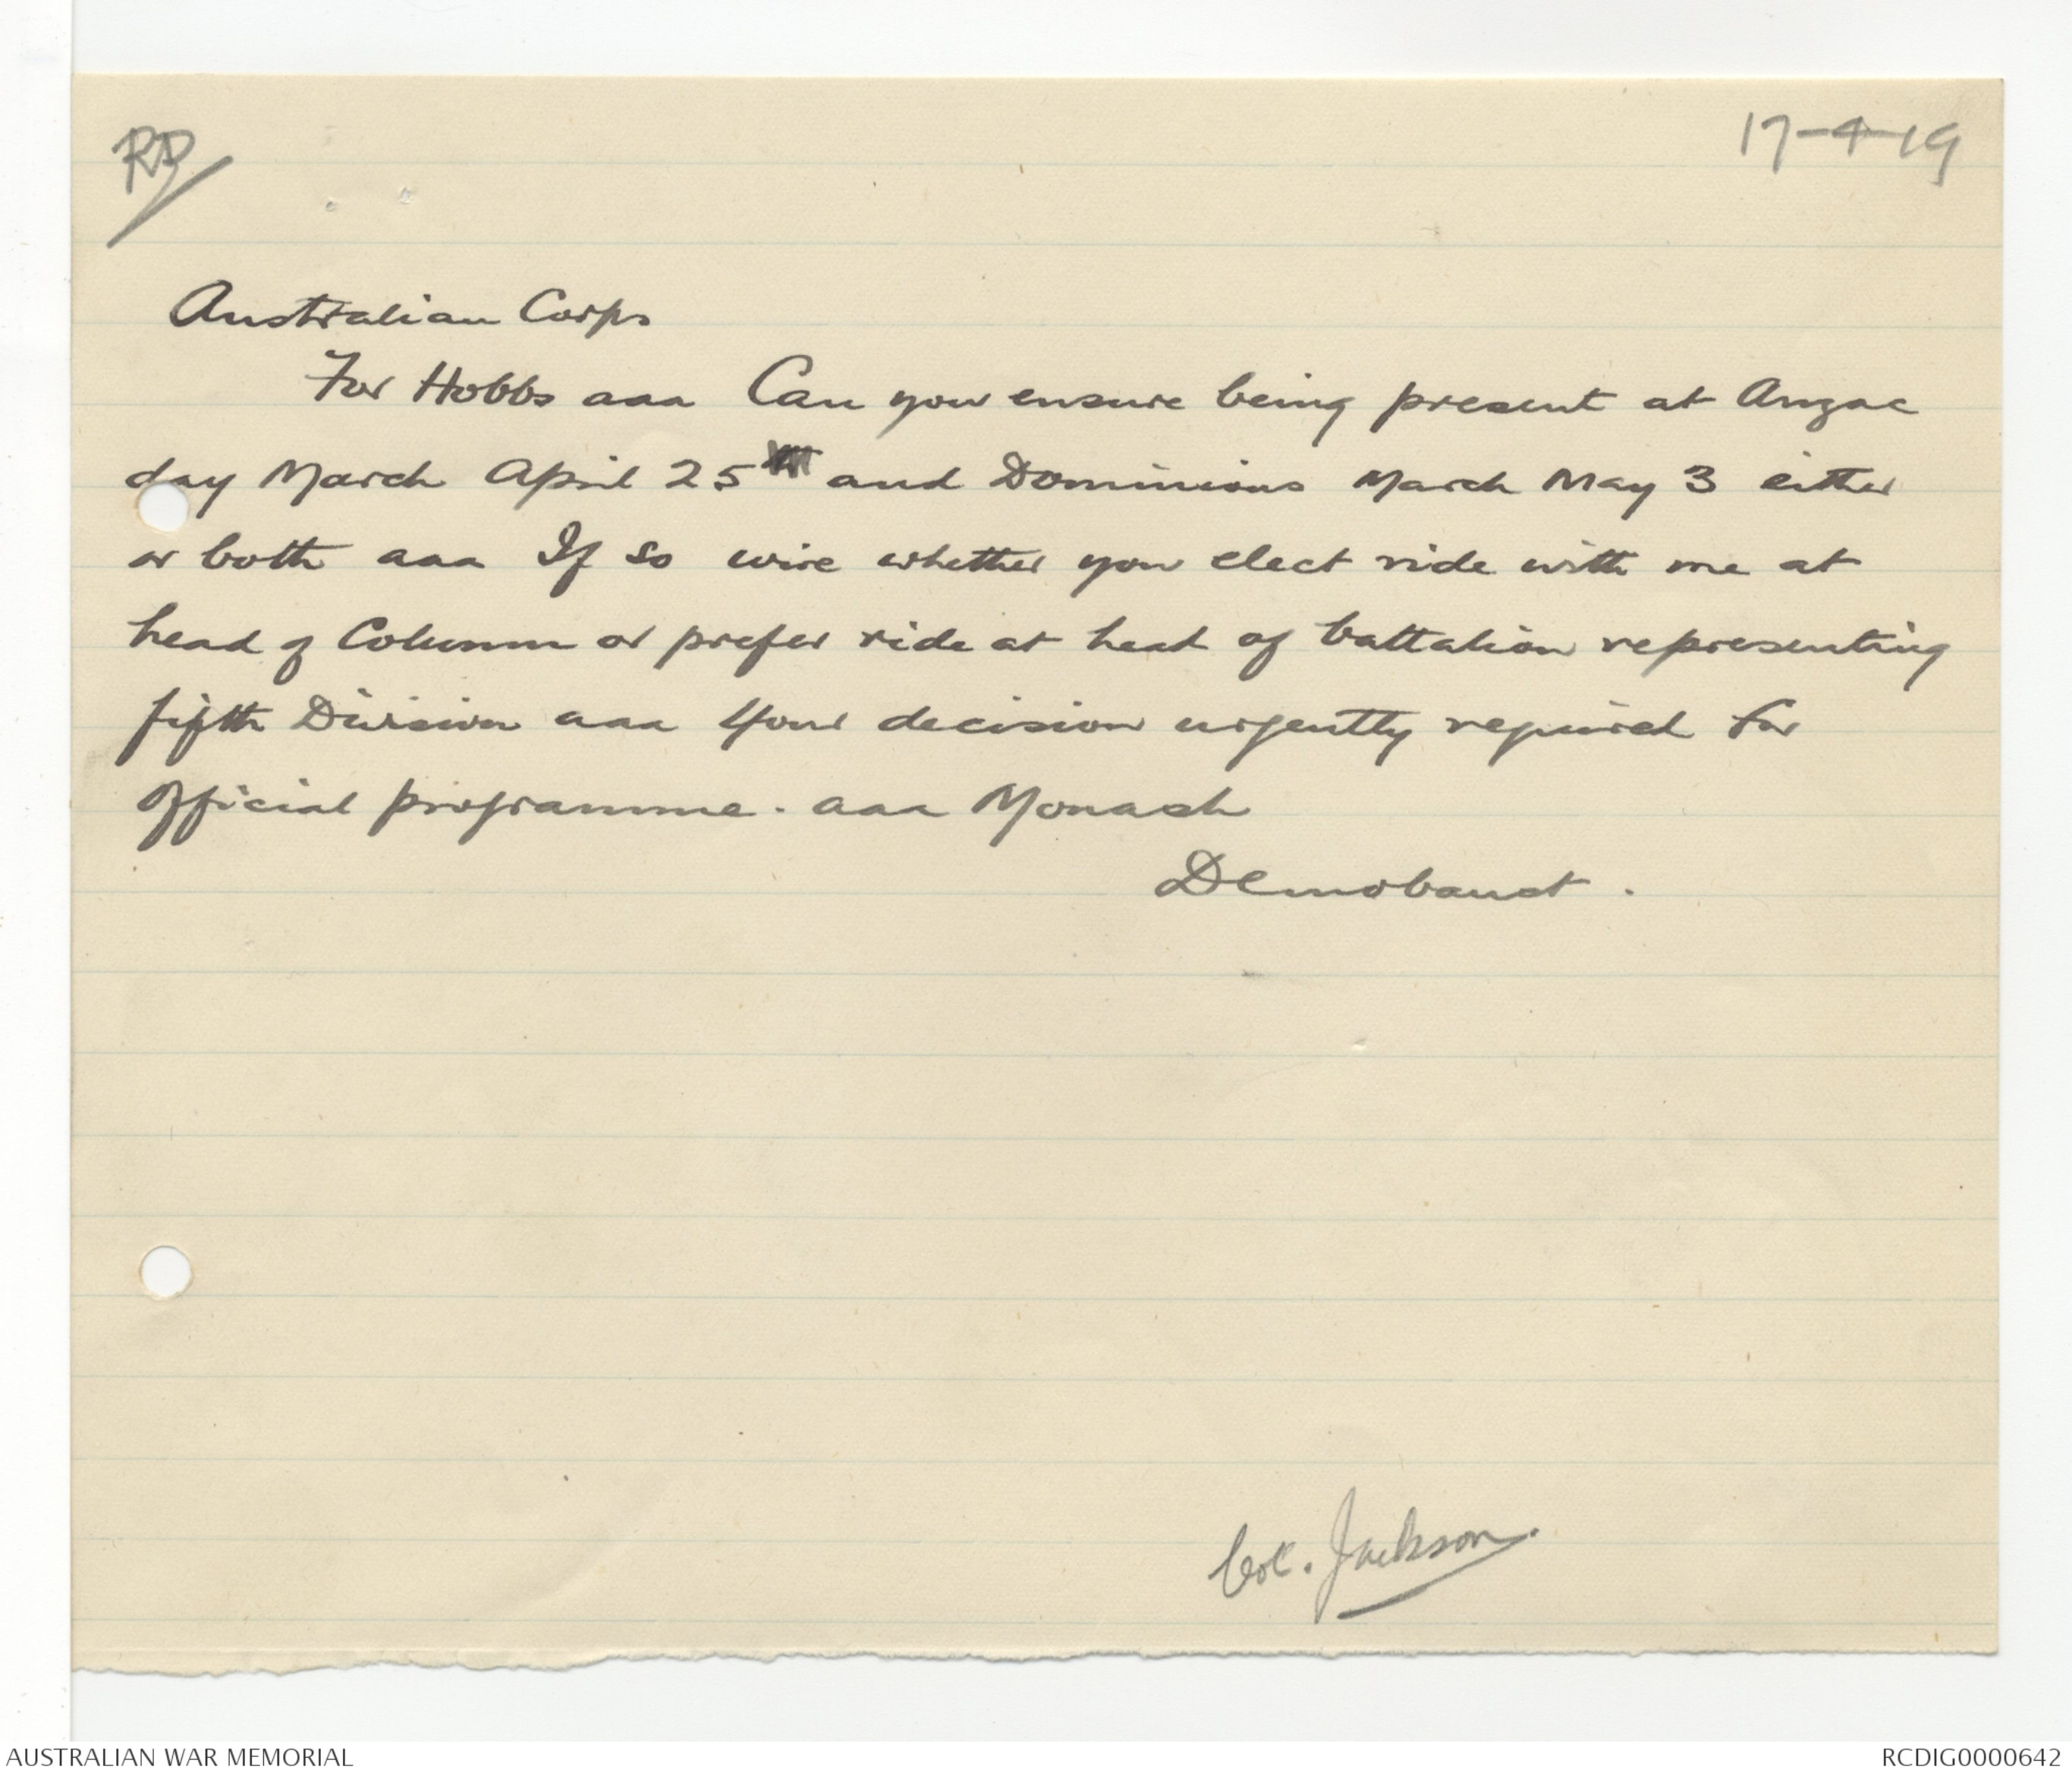 RD
17-4-19
Australian Corps
For Hobbs aaa Can you ensure being present at Anzac
day March April 25 and Dominions March May 3 either
or both aaa If so wire whether you elect ride with me at
head of Column or prefer ride at head of battalion representing
fifth Division aaa Your decision urgently required for
official programme. aaa Monash
Demobaust.
Col. Jackson.
AUSTRALIAN WAR MEMORIAL
RCDIG0000642